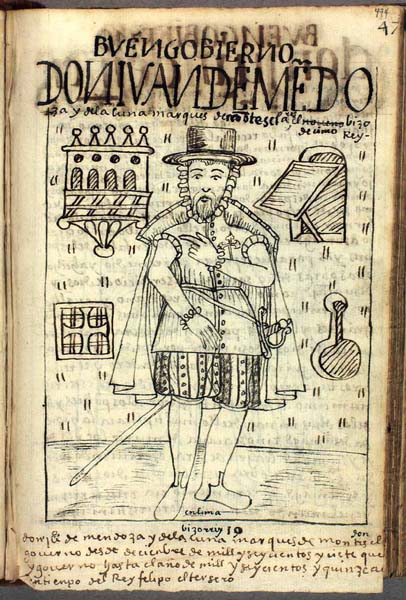 474
47
BVEN GOBIERNO
DON IVAN DE MEDO
za y de la luna marques de mõtesclaros, el noueno bizo
decimo Rey-
en lima
bizorrey 10
don juº de mendoza y de la luna marques de montes
don
gouerno desde deciembre de mill y seycientos y ciete que
y gouerno hasta el año de mill y seycientos y quinze a
en tienpo del Rey felipo el tersero